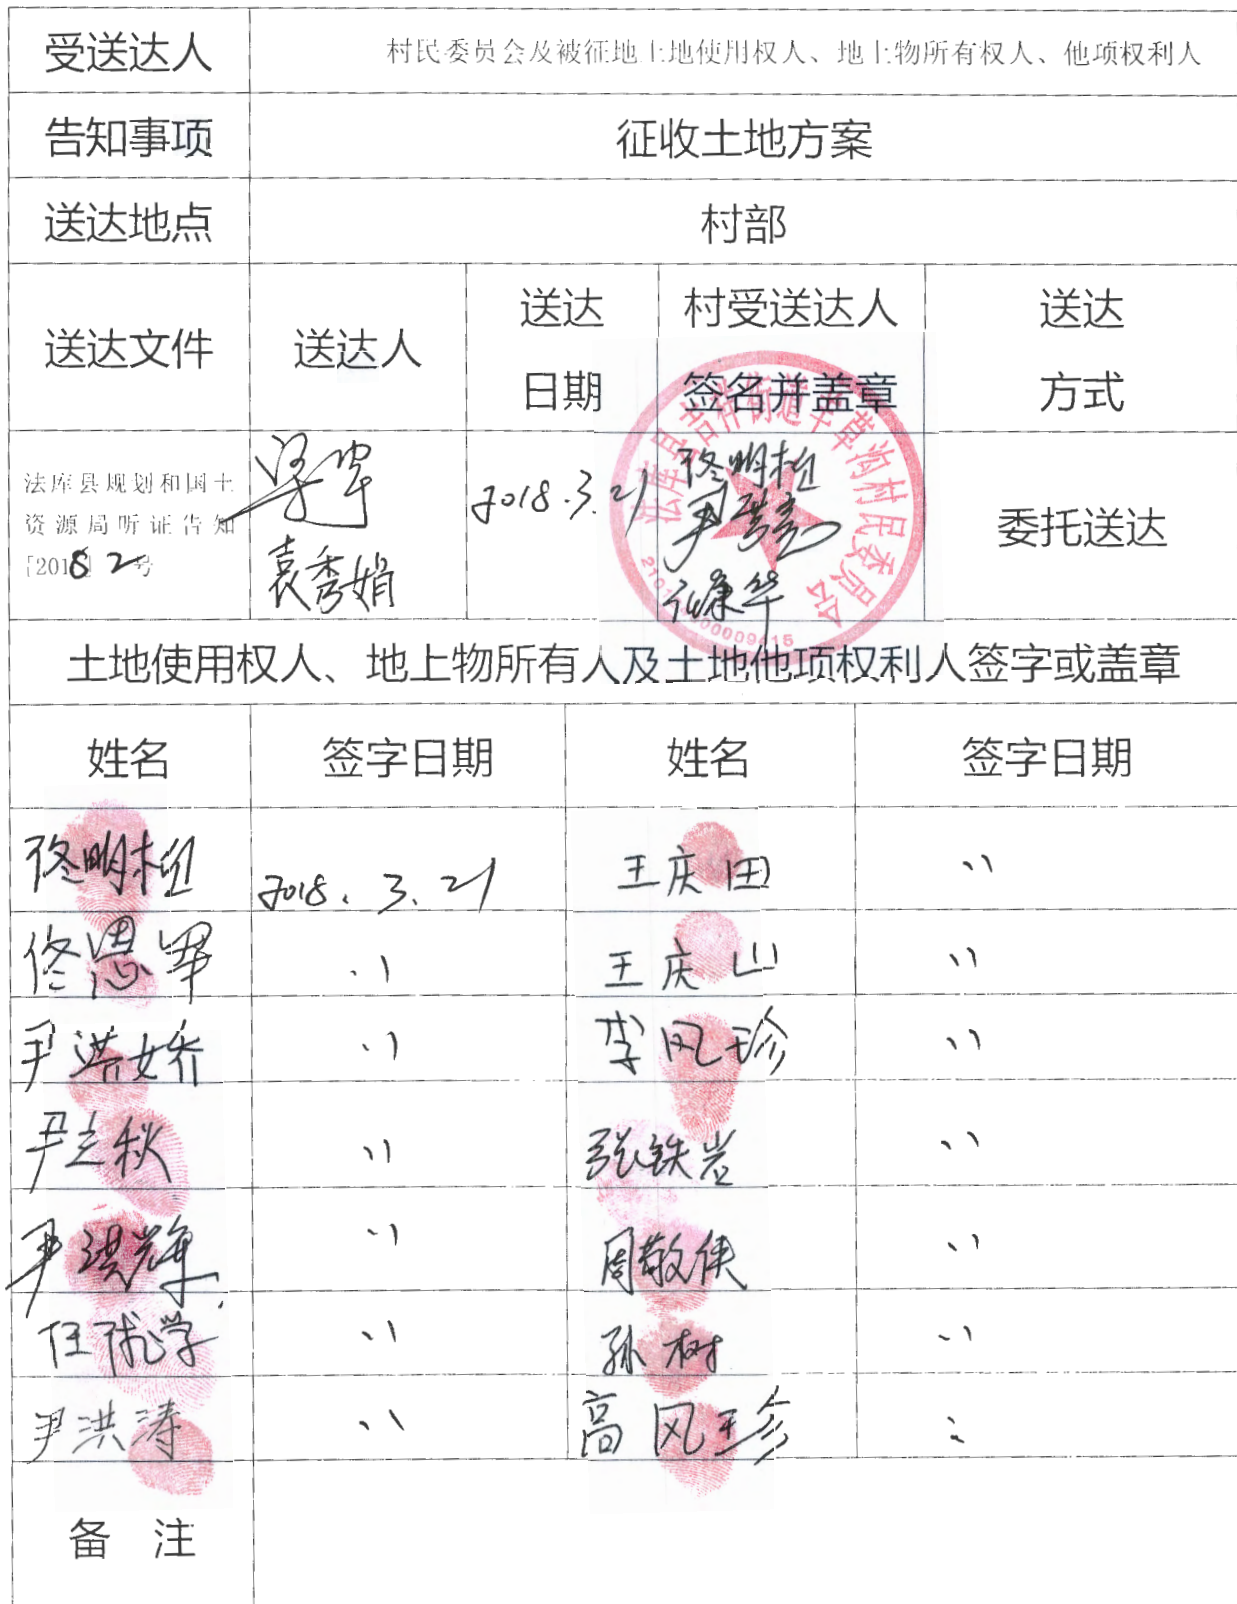 受送达人 村民委员会及被征地土地使用权人、地上物所有权人、他项权利人
告知事项 征收土地方案
送达地点 村部
送达文件 送达人 送达日期 村受送达人签名并盖章 送达方式
法库县规划和国土
资源局听证告知
[2018] 2号
袁秀娟
2018.3.21
佟明桓
委托送达
法库县吉祥街道羊草沟村民委员会
土地使用权人、地上物所有人及土地他项权利人签字或盖章
姓名 签字日期 姓名 签字日期
佟明桓 2018.3.21 王庆田 〃
佟恩军 〃 王庆山 〃
尹洪娇 〃 李风珍 〃
尹立秋 〃 张铁岩 〃
尹洪辉 〃 周敬侠 〃
〃 孙树 〃
尹洪涛 〃 高风珍 〃
备 注